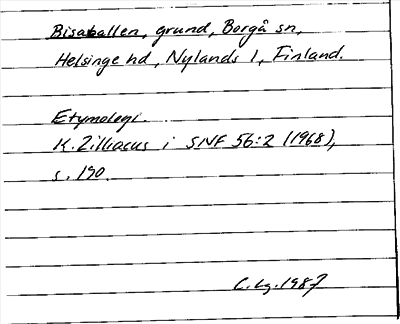 Bisaballen, grund, Borgå sn,
Helsinge hd, Nylands l, Finland.
Etymologi.
K. Zilliacus i SNF 56:2 (1968),
s. 190.
C. Lg. 1987